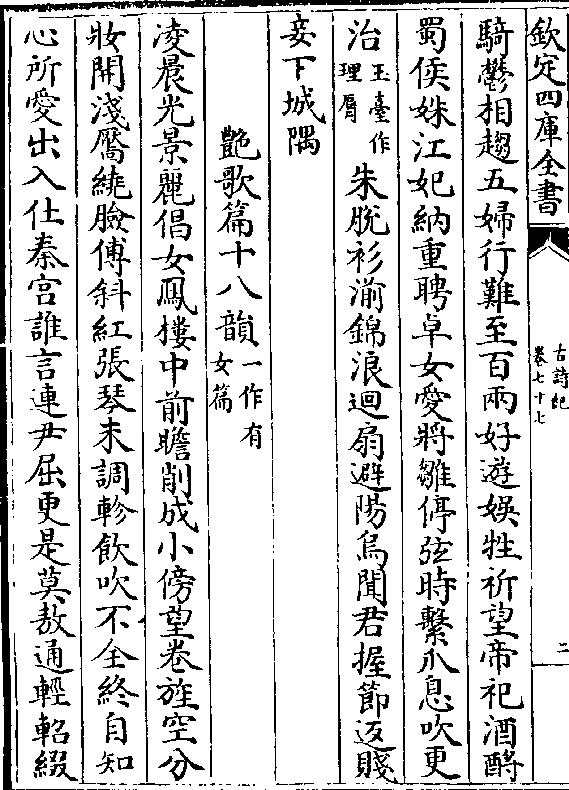 欽定四庫全書
古詩紀
卷七十七
二
騎鬱相趨五婦行難至百兩好遊娛牲祈望帝祀酒酹
蜀侯姝江妃納重聘卓女愛將雛停弦時繫爪息吹更
治玉臺作理脣朱脫衫湔錦浪迴扇避陽烏聞君握節返賤
妾下城隅
艷歌篇十八韻一作有女篇
凌晨光景麗倡女鳳樓中前瞻削成小傍望卷旌空分
妝開淺靨繞臉傅斜紅張琴未調軫飲吹不全終自知
心所愛出入仕秦宮誰言連尹屈更是莫敖通輕軺綴